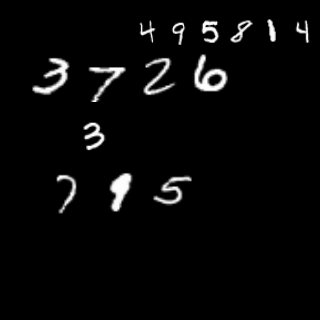 495814
3726
3
795